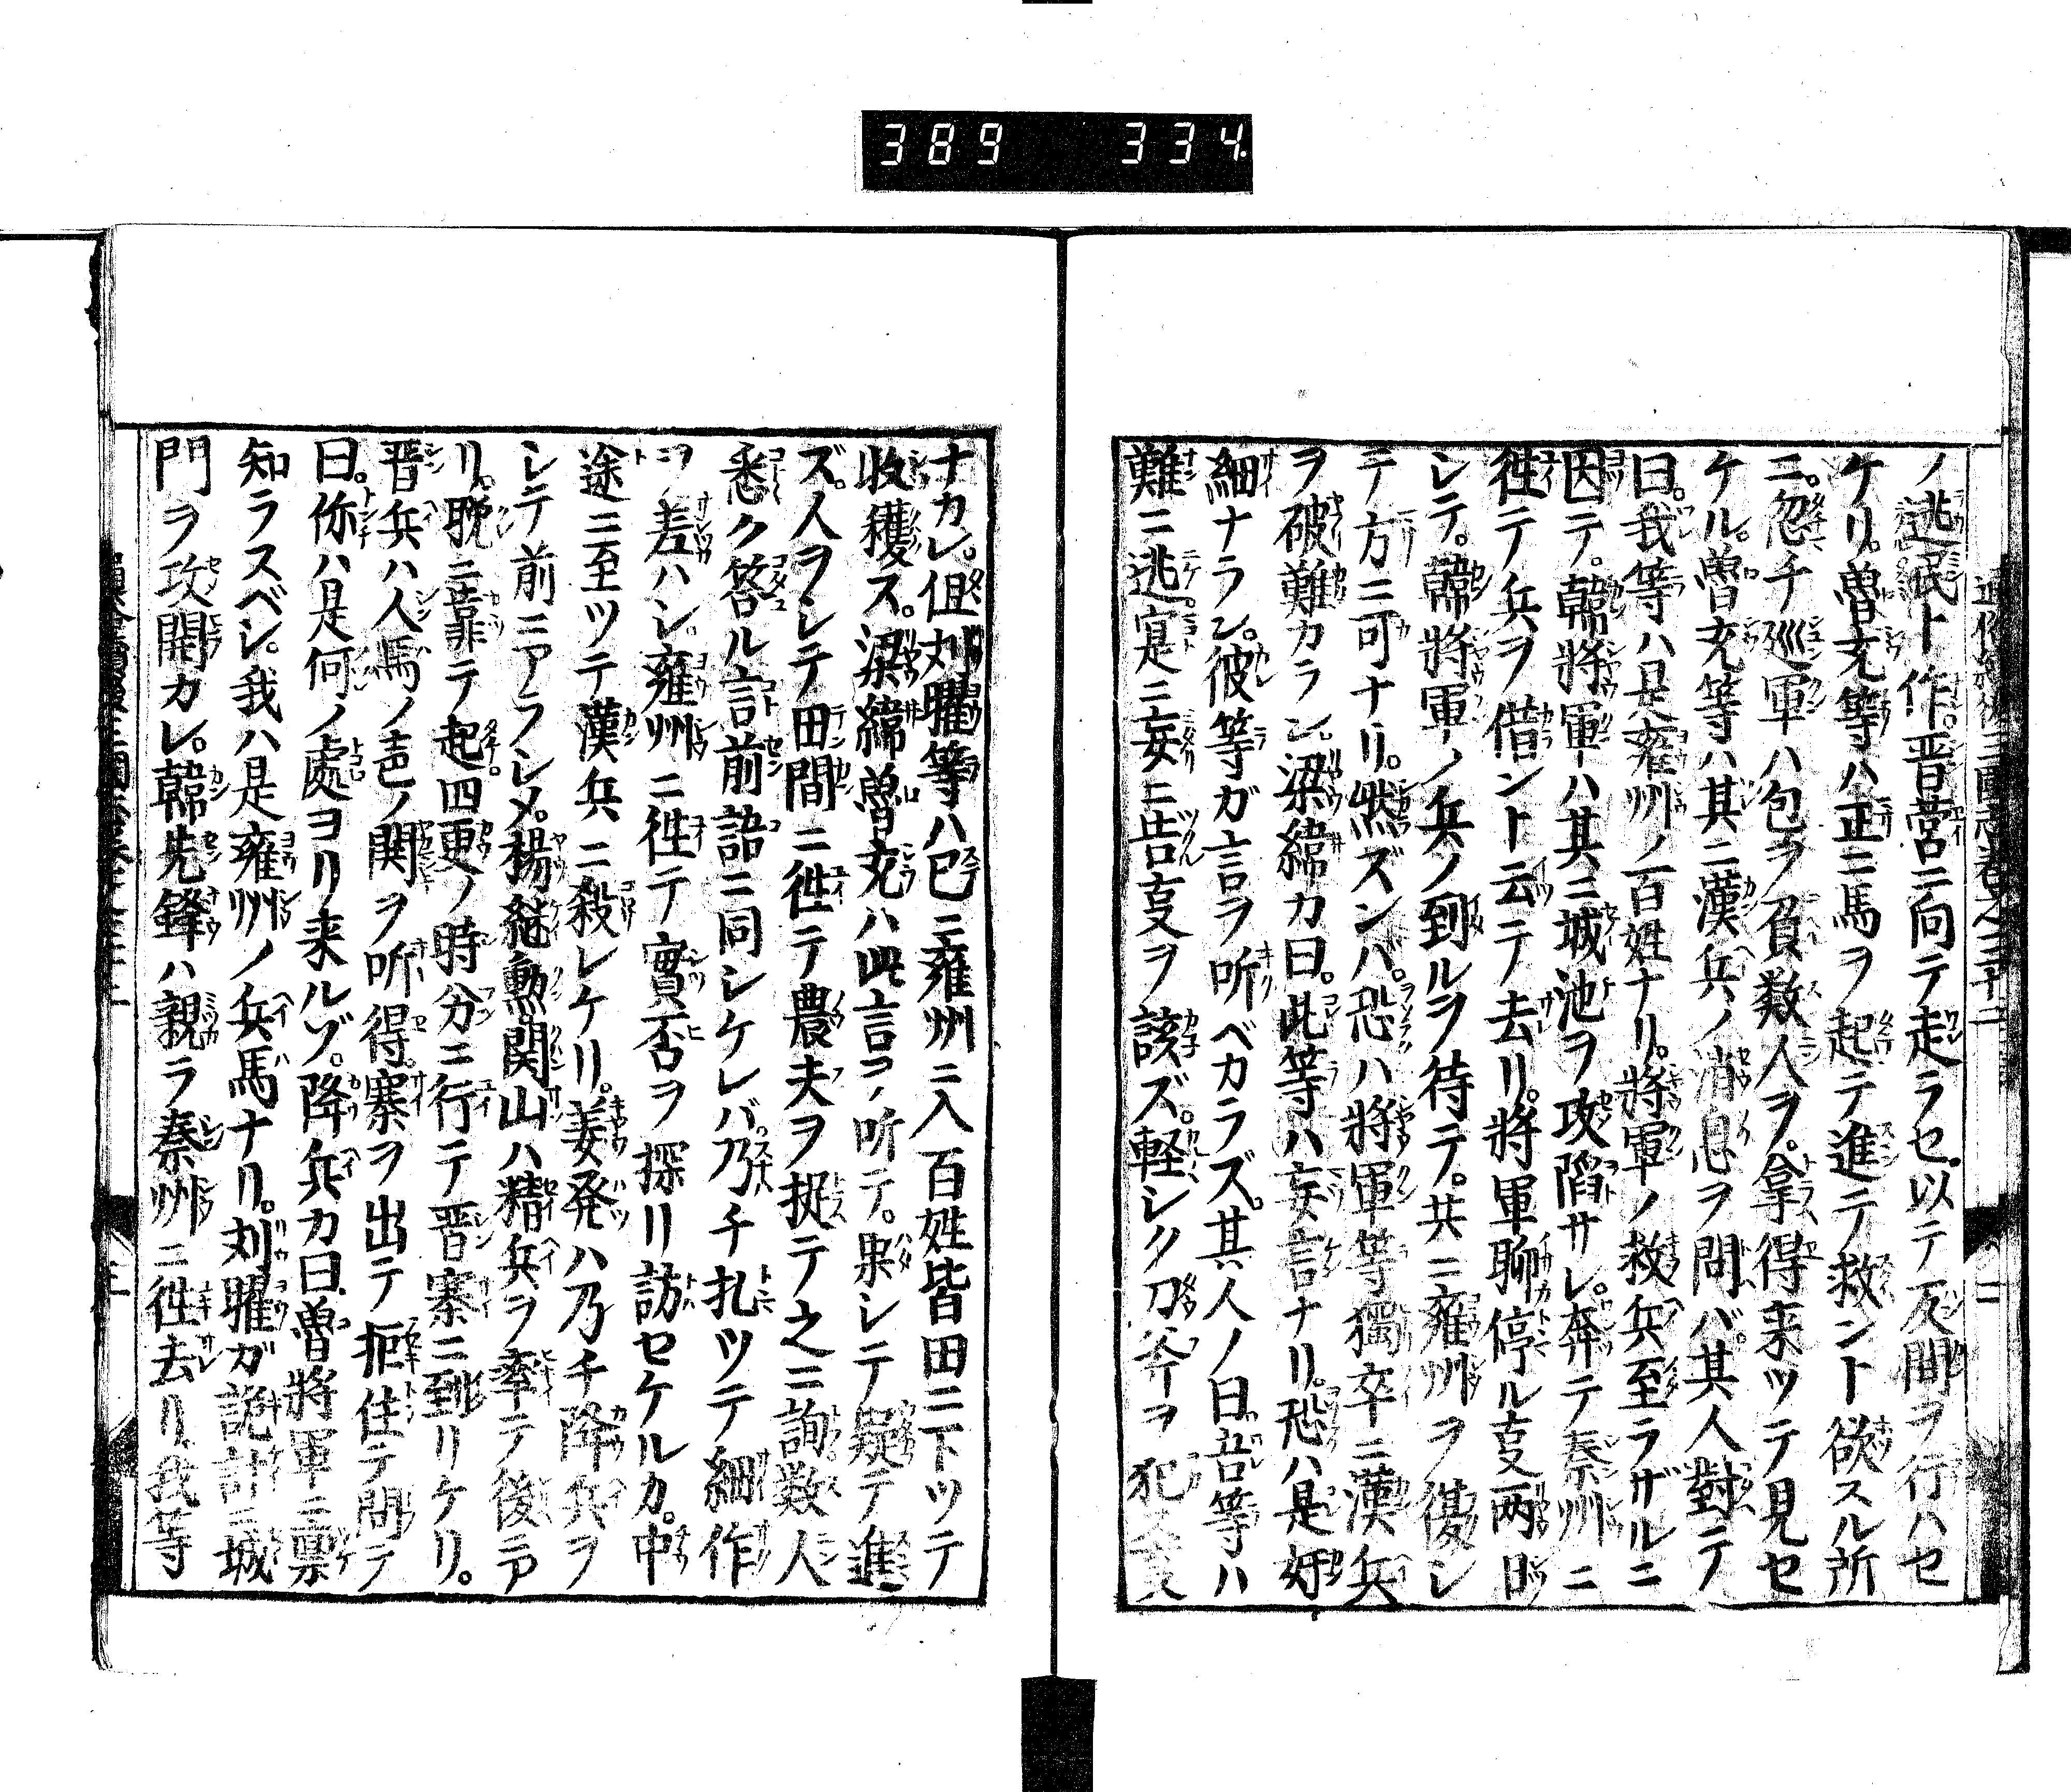 389 334
ノ逃民ト作。晋営ニ向テ走ラセ。以テ反間ヲ行ハセ
ケリ。魯充等ハ正ニ馬ヲ起テ進テ救ント欲スル所
ニ。忽チ巡軍ハ包ヲ負数人ヲ。拿得来ツテ見セ
ケル。魯充等ハ其ニ漢兵ノ消息ヲ問バ。其人對テ
曰。我等ハ是雍州ノ百姓ナリ。將軍ノ救兵至ラザルニ
因テ。韓將軍ハ其ニ城池ヲ攻陷サレ。奔テ秦州ニ
徃テ兵ヲ借ント云テ去リ。將軍聊停ル叓两日
シテ。韓將軍ノ兵ノ到ルヲ待テ。共ニ雍州ヲ復シ
テ方ニ可ナリ。然ズンバ。恐ハ將軍等獨卒ニ漢兵
ヲ破難カラン。梁緯カ曰。此等ハ妄言ナリ。恐ハ是奸
細ナラン。彼等ガ言ヲ听ベカラズ。其人ノ曰吾等ハ
難ニ逃。寔ニ妄ニ告叓ヲ該ズ。軽シク刀斧ヲ犯
ナカレ。但刘曜等ハ已ニ雍州ニ入百姓皆田ニ下ツテ
收穫ス。梁緯魯充ハ此言ヲ听テ。果シテ疑テ進
ズ。人ヲシテ田間ニ徃テ農夫ヲ捉テ之ニ詢数人
悉ク答ル言前語ニ同シケレバ。乃チ扎ツテ細作
ヲ差ハシ。雍州ニ徃テ實否ヲ探リ訪セケルカ。中
途ニ至ツテ漢兵ニ殺レケリ。姜発ハ乃チ降兵ヲ
シテ前ニアラシメ。楊継勲関山ハ精兵ヲ率テ後ニア
リ。晩ニ靠テ起。四更ノ時分ニ行テ晋寨ニ到リケリ。
晋兵ハ人馬ノ声ノ閙ヲ听得。寨ヲ出テ拒住テ問テ
曰。你ハ是何ノ處ヨリ来ルゾ。降兵カ曰。魯將軍ニ禀
知ラスベシ。我ハ是雍州ノ兵馬ナリ。刘曜ガ詭計ニ城
門ヲ攻開カレ。韓先鋒ハ親ラ秦州ニ徃去リ。我等